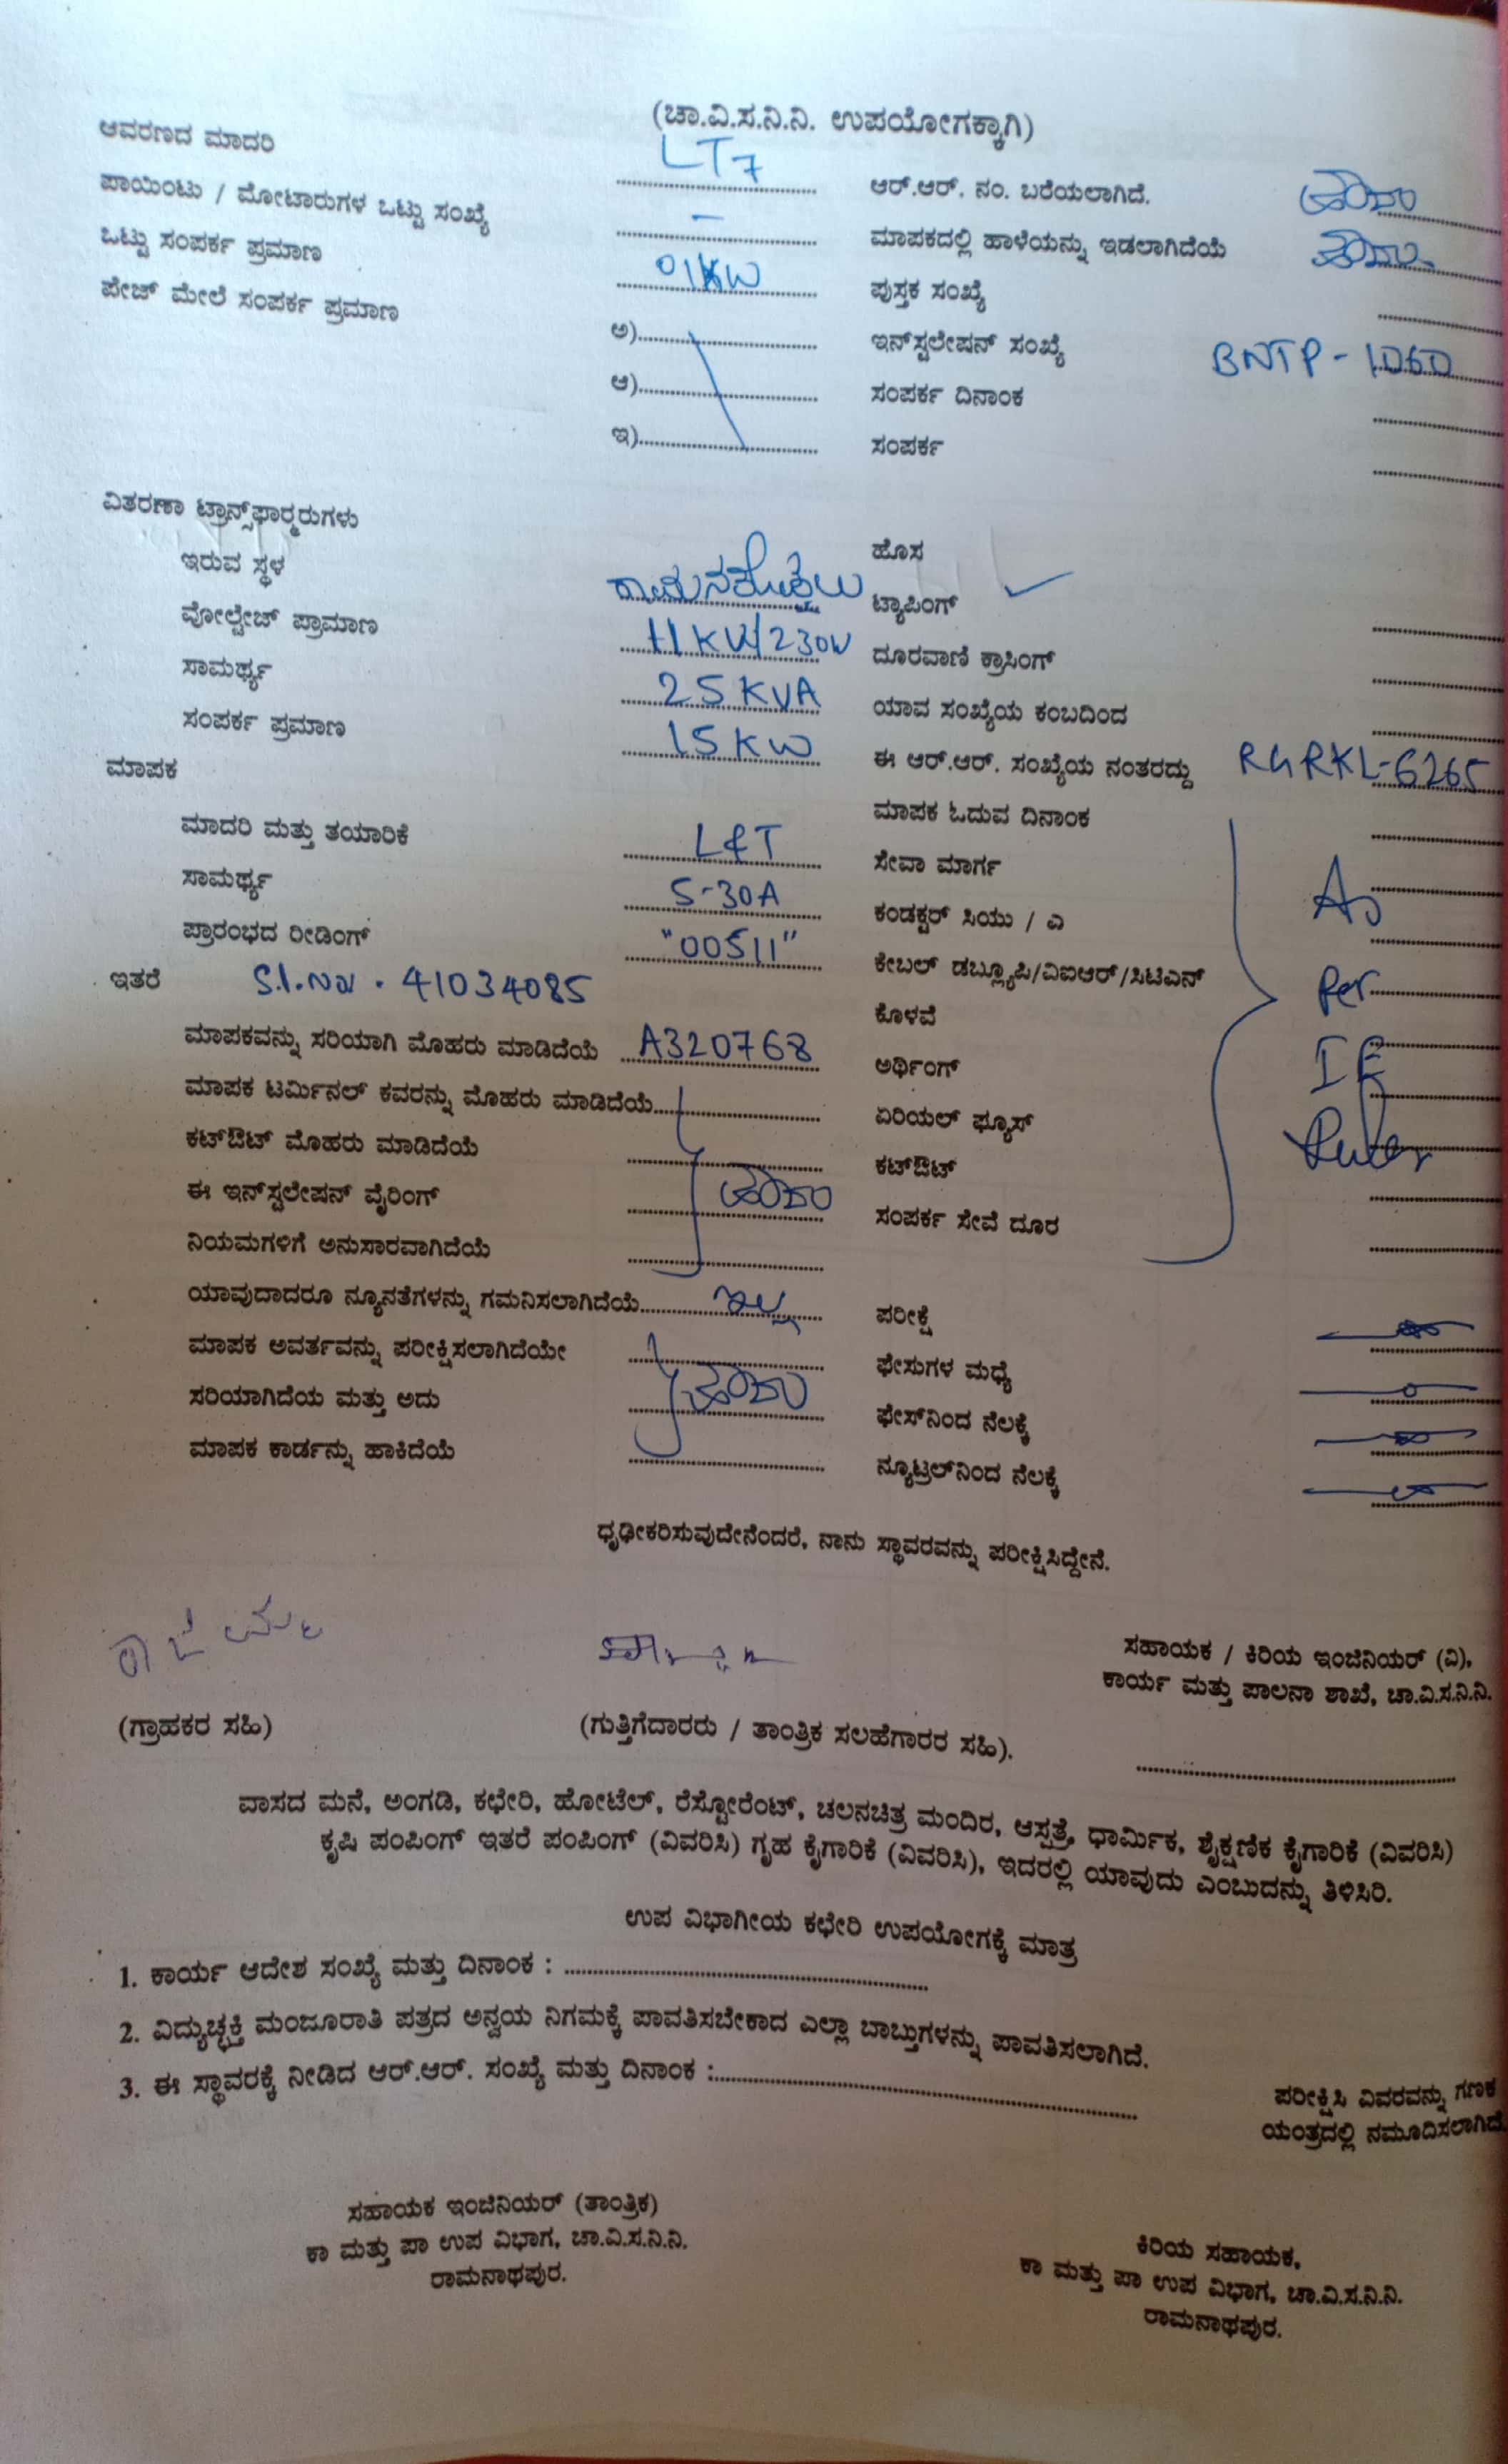 (ಚಾ.ವಿ.ಸ.ನಿ.ನಿ. ಉಪಯೋಗಕ್ಕಾಗಿ)
ಆವರಣದ ಮಾದರಿ LT7
ಪಾಯಿಂಟು / ಮೋಟಾರುಗಳ ಒಟ್ಟು ಸಂಖ್ಯೆ –
ಒಟ್ಟು ಸಂಪರ್ಕ ಪ್ರಮಾಣ 01KW
ಪೇಜ್ ಮೇಲೆ ಸಂಪರ್ಕ ಪ್ರಮಾಣ
ಅ)
ಆ)
ಇ)
ಆರ್.ಆರ್. ನಂ. ಬರೆಯಲಾಗಿದೆ. ಹೌದು
ಮಾಪಕದಲ್ಲಿ ಹಾಳೆಯನ್ನು ಇಡಲಾಗಿದೆಯೆ ಹೌದು
ಪುಸ್ತಕ ಸಂಖ್ಯೆ
ಇನ್‌ಸ್ಟಲೇಷನ್ ಸಂಖ್ಯೆ BNTP-1060
ಸಂಪರ್ಕ ದಿನಾಂಕ
ಸಂಪರ್ಕ
ವಿತರಣಾ ಟ್ರಾನ್ಸ್‌ಫಾರ್ಮರುಗಳು
ಇರುವ ಸ್ಥಳ
ವೋಲ್ಟೇಜ್ ಪ್ರಾಮಾಣ 11KV/230V
ಸಾಮರ್ಥ್ಯ 25KVA
ಸಂಪರ್ಕ ಪ್ರಮಾಣ 15KW
ಮಾಪಕ
ಮಾದರಿ ಮತ್ತು ತಯಾರಿಕೆ L&T
ಸಾಮರ್ಥ್ಯ 5-30A
ಪ್ರಾರಂಭದ ರೀಡಿಂಗ್ "00511"
ಇತರೆ S.l.No. 41034085
ಮಾಪಕವನ್ನು ಸರಿಯಾಗಿ ಮೊಹರು ಮಾಡಿದೆಯೆ A320768
ಮಾಪಕ ಟರ್ಮಿನಲ್ ಕವರನ್ನು ಮೊಹರು ಮಾಡಿದೆಯೆ
ಕಟ್‌ಔಟ್ ಮೊಹರು ಮಾಡಿದೆಯೆ
ಈ ಇನ್‌ಸ್ಟಲೇಷನ್ ವೈರಿಂಗ್ ಹೌದು
ನಿಯಮಗಳಿಗೆ ಅನುಸಾರವಾಗಿದೆಯೆ
ಯಾವುದಾದರೂ ನ್ಯೂನತೆಗಳನ್ನು ಗಮನಿಸಲಾಗಿದೆಯೆ ಇಲ್ಲ
ಮಾಪಕ ಅವರ್ತವನ್ನು ಪರೀಕ್ಷಿಸಲಾಗಿದೆಯೇ
ಸರಿಯಾಗಿದೆಯ ಮತ್ತು ಅದು ಹೌದು
ಮಾಪಕ ಕಾರ್ಡನ್ನು ಹಾಕಿದೆಯೆ
ಹೊಸ
ಟ್ಯಾಪಿಂಗ್ ✓
ದೂರವಾಣಿ ಕ್ರಾಸಿಂಗ್
ಯಾವ ಸಂಖ್ಯೆಯ ಕಂಬದಿಂದ
ಈ ಆರ್.ಆರ್. ಸಂಖ್ಯೆಯ ನಂತರದ್ದು RGRKL-6265
ಮಾಪಕ ಓದುವ ದಿನಾಂಕ
ಸೇವಾ ಮಾರ್ಗ As
ಕಂಡಕ್ಟರ್ ಸಿಯು / ಎ
ಕೇಬಲ್ ಡಬ್ಲ್ಯೂಪಿ/ವಿಐಆರ್/ಸಿಟಿಎನ್ Per
ಕೊಳವೆ
ಅರ್ಥಿಂಗ್ IE
ಏರಿಯಲ್ ಫ್ಯೂಸ್
ಕಟ್‌ಔಟ್ Rules
ಸಂಪರ್ಕ ಸೇವೆ ದೂರ
ಪರೀಕ್ಷೆ
ಫೇಸುಗಳ ಮಧ್ಯೆ
ಫೇಸ್‌ನಿಂದ ನೆಲಕ್ಕೆ
ನ್ಯೂಟ್ರಲ್‌ನಿಂದ ನೆಲಕ್ಕೆ
ಧೃಢೀಕರಿಸುವುದೇನೆಂದರೆ, ನಾನು ಸ್ಥಾವರವನ್ನು ಪರೀಕ್ಷಿಸಿದ್ದೇನೆ.
(ಗ್ರಾಹಕರ ಸಹಿ)
(ಗುತ್ತಿಗೆದಾರರು / ತಾಂತ್ರಿಕ ಸಲಹೆಗಾರರ ಸಹಿ).
ಸಹಾಯಕ / ಕಿರಿಯ ಇಂಜಿನಿಯರ್ (ವಿ),
ಕಾರ್ಯ ಮತ್ತು ಪಾಲನಾ ಶಾಖೆ, ಚಾ.ವಿ.ಸ.ನಿ.ನಿ.
ವಾಸದ ಮನೆ, ಅಂಗಡಿ, ಕಛೇರಿ, ಹೋಟೆಲ್, ರೆಸ್ಟೋರೆಂಟ್, ಚಲನಚಿತ್ರ ಮಂದಿರ, ಆಸ್ಪತ್ರೆ, ಧಾರ್ಮಿಕ, ಶೈಕ್ಷಣಿಕ ಕೈಗಾರಿಕೆ (ವಿವರಿಸಿ)
ಕೃಷಿ ಪಂಪಿಂಗ್ ಇತರೆ ಪಂಪಿಂಗ್ (ವಿವರಿಸಿ) ಗೃಹ ಕೈಗಾರಿಕೆ (ವಿವರಿಸಿ), ಇದರಲ್ಲಿ ಯಾವುದು ಎಂಬುದನ್ನು ತಿಳಿಸಿರಿ.
ಉಪ ವಿಭಾಗೀಯ ಕಛೇರಿ ಉಪಯೋಗಕ್ಕೆ ಮಾತ್ರ
1. ಕಾರ್ಯ ಆದೇಶ ಸಂಖ್ಯೆ ಮತ್ತು ದಿನಾಂಕ :
2. ವಿದ್ಯುಚ್ಛಕ್ತಿ ಮಂಜೂರಾತಿ ಪತ್ರದ ಅನ್ವಯ ನಿಗಮಕ್ಕೆ ಪಾವತಿಸಬೇಕಾದ ಎಲ್ಲಾ ಬಾಬ್ತುಗಳನ್ನು ಪಾವತಿಸಲಾಗಿದೆ.
3. ಈ ಸ್ಥಾವರಕ್ಕೆ ನೀಡಿದ ಆರ್.ಆರ್. ಸಂಖ್ಯೆ ಮತ್ತು ದಿನಾಂಕ :
ಪರೀಕ್ಷಿಸಿ ವಿವರವನ್ನು ಗಣಕ
ಯಂತ್ರದಲ್ಲಿ ನಮೂದಿಸಲಾಗಿದೆ.
ಸಹಾಯಕ ಇಂಜಿನಿಯರ್ (ತಾಂತ್ರಿಕ)
ಕಾ ಮತ್ತು ಪಾ ಉಪ ವಿಭಾಗ, ಚಾ.ವಿ.ಸ.ನಿ.ನಿ.
ರಾಮನಾಥಪುರ.
ಕಿರಿಯ ಸಹಾಯಕ,
ಕಾ ಮತ್ತು ಪಾ ಉಪ ವಿಭಾಗ, ಚಾ.ವಿ.ಸ.ನಿ.ನಿ.
ರಾಮನಾಥಪುರ.